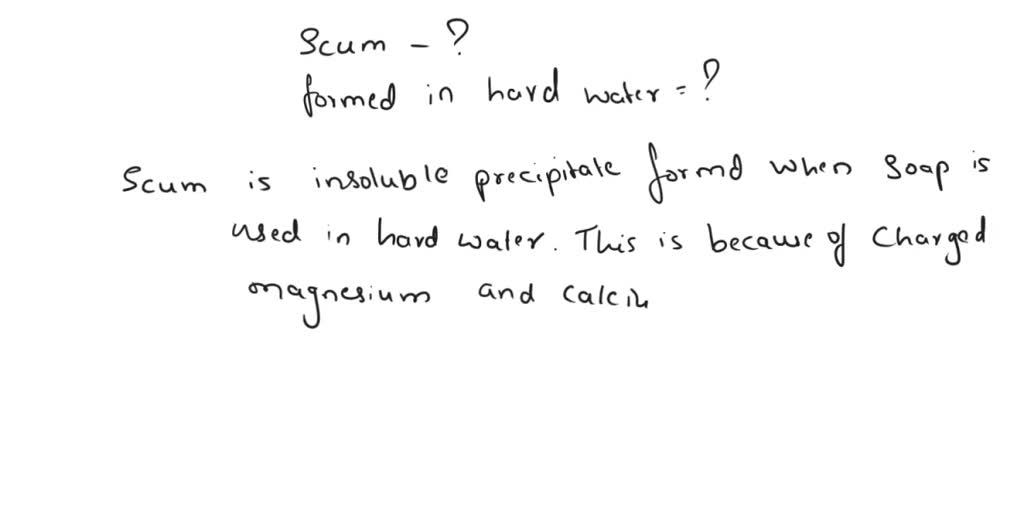 Scum - ?
formed in hard water = ?
Scum is insoluble precipitate formd when soap is
used in hard water. This is because of charged
magnesium and calciu